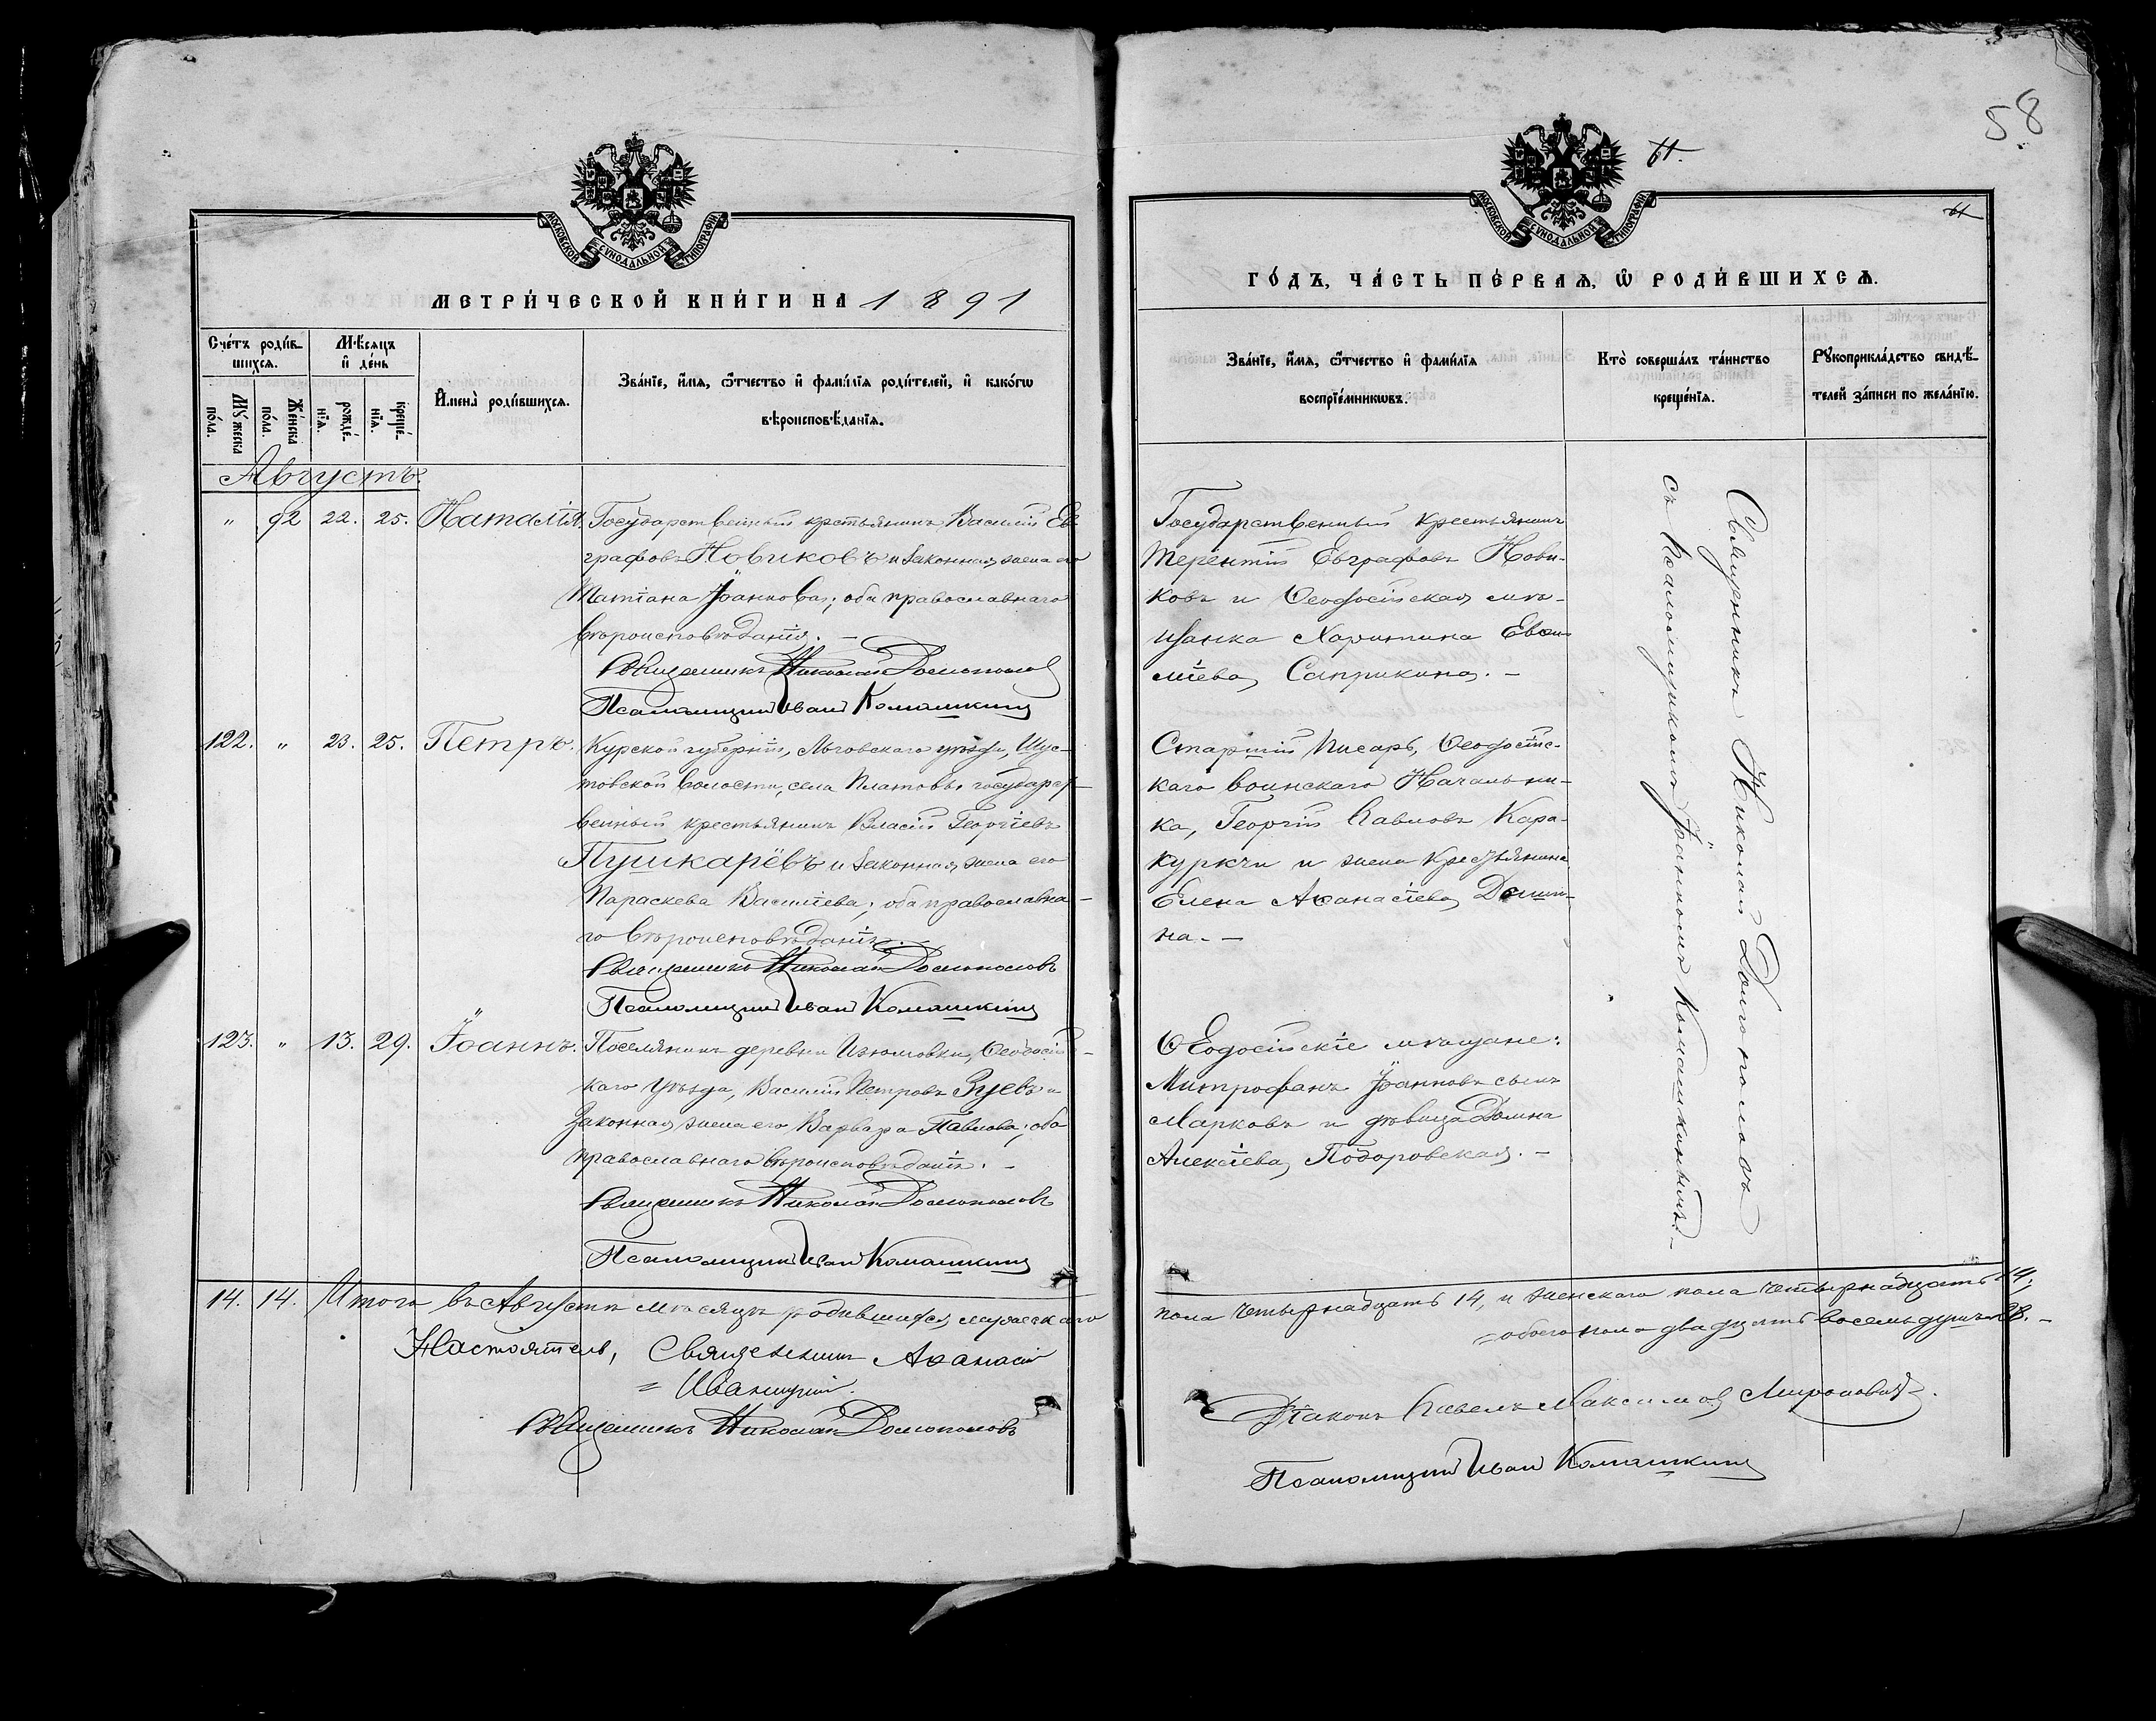 58
61.
61
МОСКОВСКОЙ СУНОДАЛЬНОЙ ТИПОГРАФІИ
МЕТРИ́ЧЕСКОЙ КНИ́ГИ НА 1891
Сче́тъ роди́в-
шихсѧ.
Мѣ́сѧцъ
и҆ де́нь
Мꙋ́жеска
по́ла.
Же́нска
по́ла.
рожде́-
нїѧ.
креще́-
нїѧ.
И҆мена̀ роди́вшихсѧ.
Зва́нїе, и҆́мѧ, ѻ҆́тчество и҆ фами́лїѧ роди́телей, и҆ како́гѡ
вѣроисповѣ́данїѧ.
Августъ.
" 92 22. 25. Наталія.
Государственный крестьянинъ Василій Ев-
графовъ Новиковъ и законная жена его
Татіана Іоаннова; оба православнаго
вѣроисповѣданія. –
Священникъ Николай Долгополовъ
Псаломщикъ Иван Комашкинъ
122. " 23. 25. Петръ.
Курской губерніи, Льговскаго уѣзда, Шус-
товской волости, села Платовъ государст-
венный крестьянинъ Власій Георгіевъ
Пушкарёвъ и законная жена его
Параскева Василіева; оба православна-
го вѣроисповѣданія.
Священникъ Николай Долгополовъ
Псаломщикъ Иван Комашкинъ
123. " 13. 29. Іоаннъ.
Поселянинъ деревни Изюмовки, Ѳеодосій-
скаго уѣзда, Василій Петровъ Зуевъ и
законная жена его Варвара Павлова; оба
православнаго вѣроисповѣданія. –
Священникъ Николай Долгополовъ
Псаломщикъ Иван Комашкинъ
14. 14. Итого въ Августѣ мѣсяцѣ родившихся мужескаго
Настоятель, Священникъ Аѳанасій
= Иваницкій.
Священникъ Николай Долгополовъ
МОСКОВСКОЙ СУНОДАЛЬНОЙ ТИПОГРАФІИ
ГО́ДЪ, ЧА́СТЬ ПЕ́РВАѦ, Ѡ҆ РОДИ́ВШИХСѦ.
Зва́нїе, и҆́мѧ, ѻ҆́тчество и҆ фами́лїѧ
воспрїе́мникѡвъ.
Кто̀ соверша́лъ та́инство
креще́нїѧ.
Рꙋкоприкла́дство свидѣ́-
телей за́писи по жела́нїю.
Государственный крестьянинъ
Терентій Евграфовъ Нови-
ковъ и Ѳеодосійская мѣ-
щанка Харитина Евѳи-
міева Саприкина. –
Старшій писарь, Ѳеодосійс-
каго воинскаго Начальни-
ка, Георгій Павловъ Кара-
куркчи и жена крестьянина
Елена Аѳанасіева Деми-
на. –
Ѳеодосійскіе мѣщане:
Митрофанъ Іоанновъ сынъ
Марковъ и дѣвица Домна
Алексіева Подоровская. –
Священникъ Николай Долгополовъ
съ псаломщикомъ Іоанномъ Комашкинымъ. –
пола четырнадцать 14, и женскаго пола четырнадцать 14;
= обоего пола двадцать восемь душъ 28. –
Діаконъ Павелъ Максимов Мироновичъ.
Псаломщикъ Иван Комашкинъ